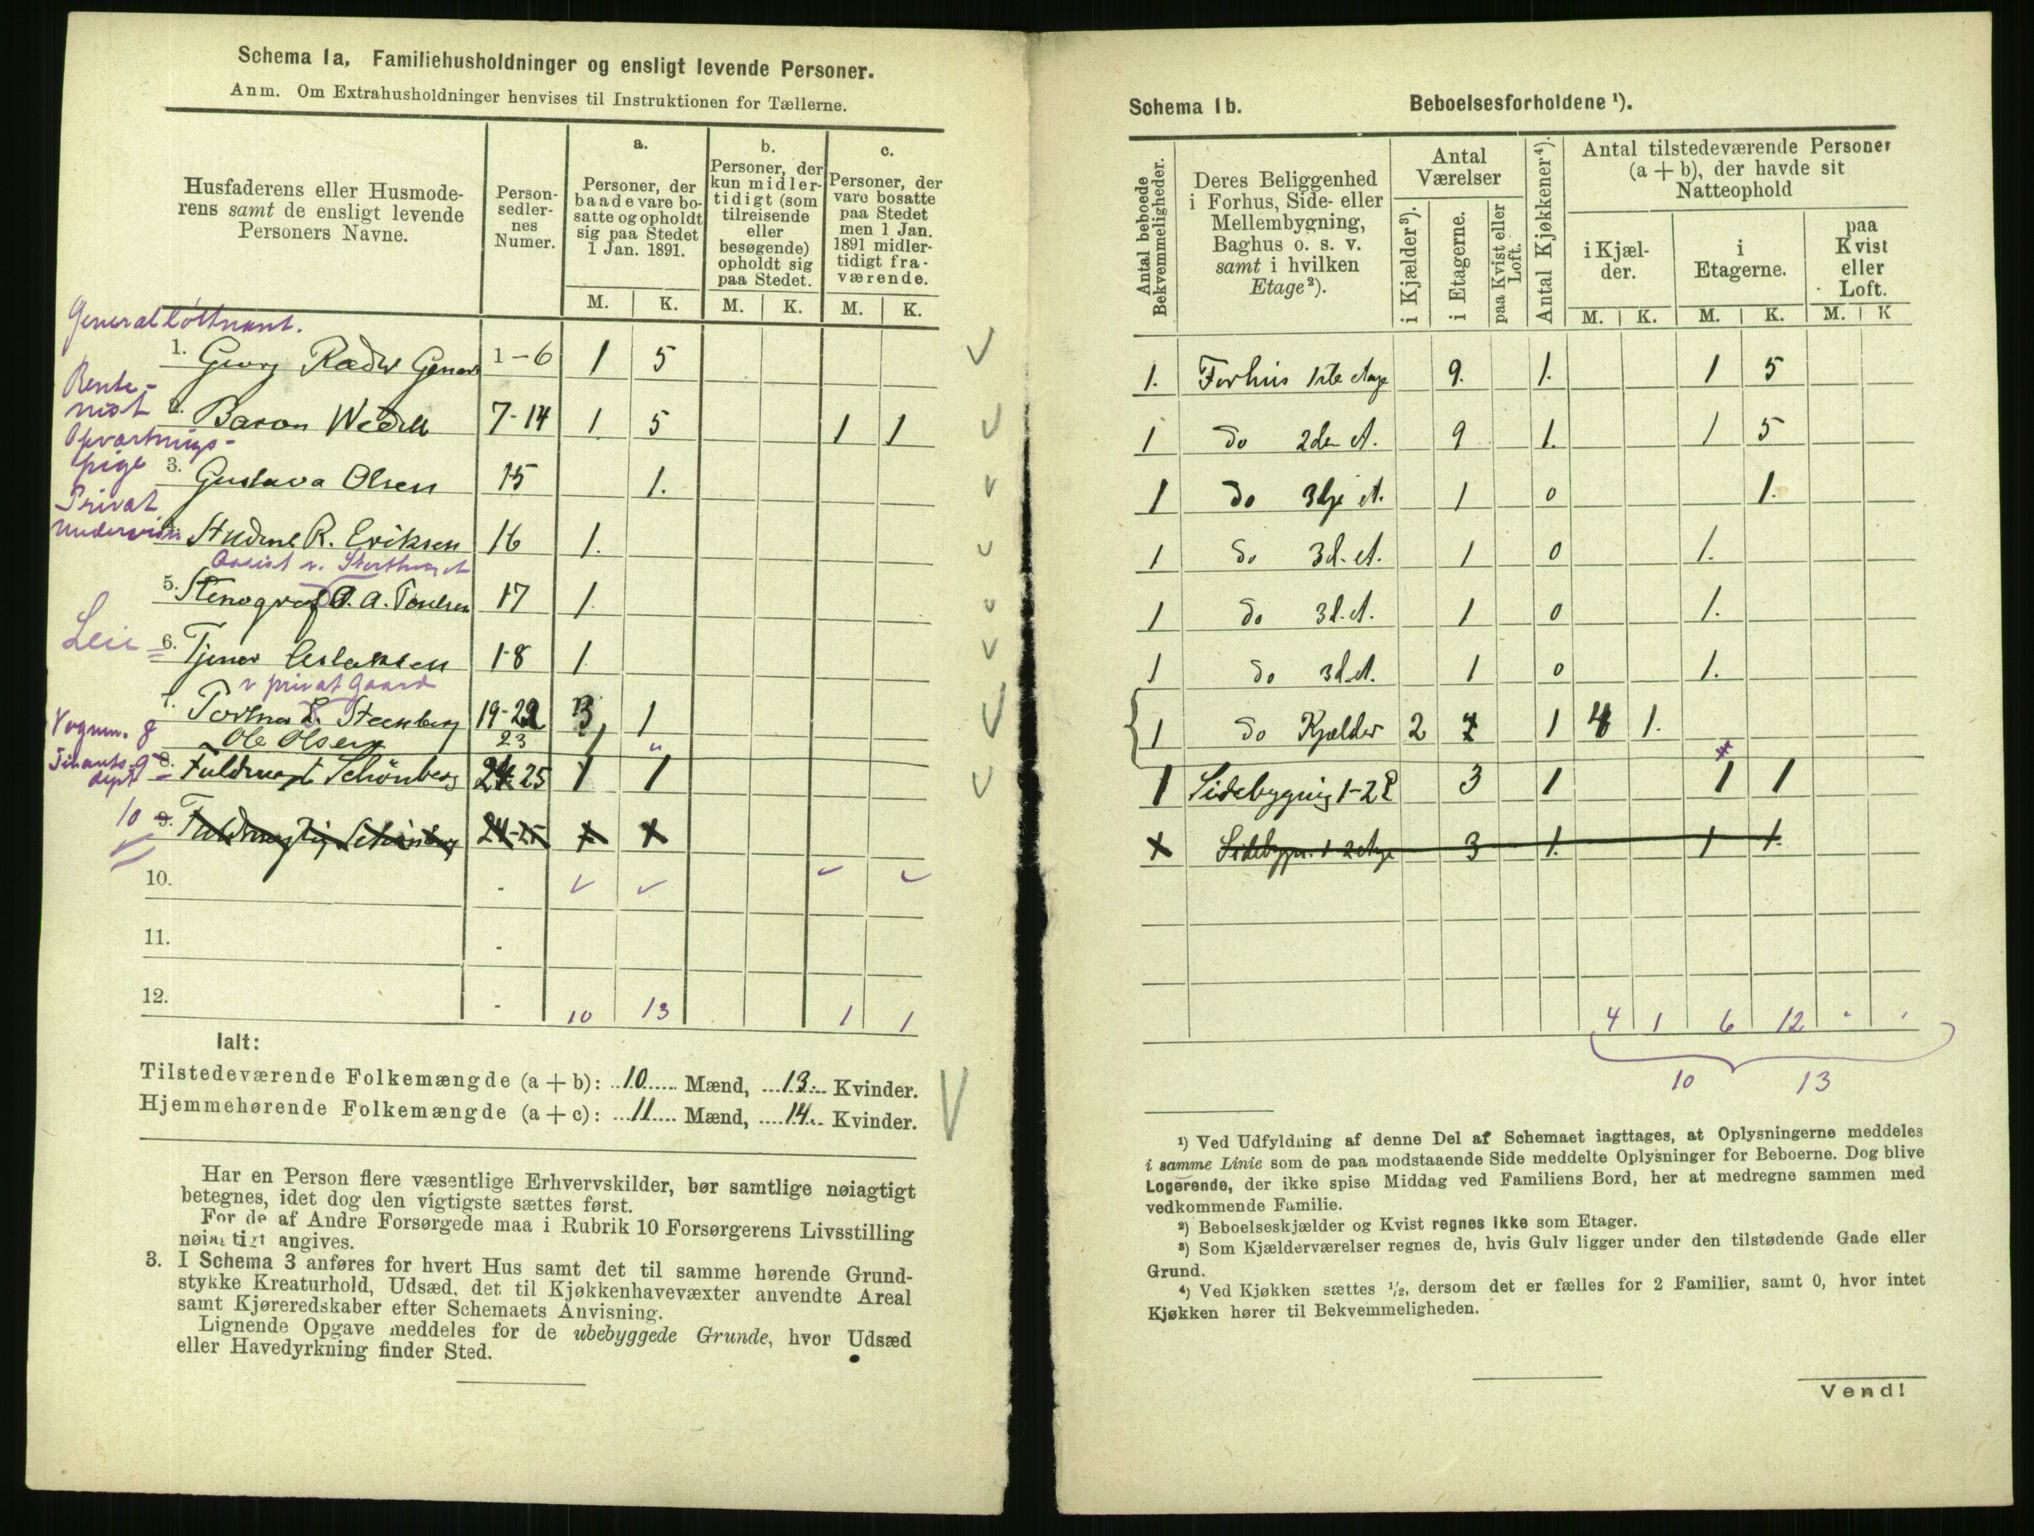 Schema 1a, Familiehusholdninger og ensligt levende Personer.
Anm. Om Extrahusholdninger henvises til Instruktionen for Tællerne.
Husfaderens eller Husmode-
rens samt de ensligt levende
Personers Navne.
Person-
sedler-
nes
Numer.
a.
Personer, der
baade vare bo-
satte og opholdt
sig paa Stedet
1 Jan. 1891.
b.
Personer, der
kun midler-
tidigt (som
tilreisende
eller
besøgende)
opholdt sig
paa Stedet.
c.
Personer, der
vare bosatte
paa Stedet
men 1 Jan.
1891 midler-
tidigt fra-
værende.
M. K. M. K. M. K.
Generalløitnant.
1. Georg Ræder 1-6 1 5
Rente-
nist
2. Baron Wedell 7-14 1. 5 1 1
Opvartnings-
pige
3. Gustava Olsen 15 1.
Privat
Student R. Eriksen 16 1.
Assist v. Storthinget
5. Stenograf A. 17 1.
Leie
6. Tjener 18 1.
v privat Gaard
7. Portner L. Steenberg 19-22 3 1
Vognm. 8 Ole Olsen 23 1 "
Finants-
dept 9
8. Fuldmægt Schönberg 24 25 1 1
10 9. Fuldmægtig Schönberg 24-25
10. -
11. -
12. - 10 13 1 1
Ialt:
Tilstedeværende Folkemængde (a + b): 10 Mænd, 13. Kvinder.
Hjemmehørende Folkemængde (a + c): 11 Mænd, 14. Kvinder.
Har en Person flere væsentlige Erhvervskilder, bør samtlige nøiagtigt
betegnes, idet dog den vigtigste sættes først.
For de af Andre Forsørgede maa i Rubrik 10 Forsørgerens Livsstilling
nøiagtigt angives.
3. I Schema 3 anføres for hvert Hus samt det til samme hørende Grund-
stykke Kreaturhold, Udsæd, det til Kjøkkenhavevæxter anvendte Areal
samt Kjøreredskaber efter Schemaets Anvisning.
Lignende Opgave meddeles for de ubebyggede Grunde, hvor Udsæd
eller Havedyrkning finder Sted.
Schema 1b. Beboelsesforholdene ¹).
Antal beboede
Bekvemmeligheder.
Deres Beliggenhed
i Forhus, Side- eller
Mellembygning,
Baghus o. s. v.
samt i hvilken
Etage²).
Antal
Værelser
i Kjælder³).
i Etagerne.
paa Kvist eller
Loft.
Antal Kjøkkener⁴).
Antal tilstedeværende Personer
(a + b), der havde sit
Natteophold
i Kjæl-
der.
i
Etagerne.
paa
Kvist
eller
Loft.
M. K. M. K. M. K
1. Forhus 1ste Etage 9. 1. 1 5
1 Do 2den Et. 9 1. 1 5
1 Do 3dje Et. 1 0 1.
1 Do 3d. Et. 1 0 1.
1 Do 3d. Et. 1 0 1.
1 Do 3d. Et. 1 0 1.
1 Do Kjælder 2 1 4 1.
1 Sidebygning 1-2 E 3 1 1 1
Sidebygn. 1-2 Etage 3 1. 1 1.
4 1 6 12 " "
10 13
¹) Ved Udfyldning af denne Del af Schemaet iagttages, at Oplysningerne meddeles
i samme Linie som de paa modstaaende Side meddelte Oplysninger for Beboerne. Dog blive
Logerende, der ikke spise Middag ved Familiens Bord, her at medregne sammen med
vedkommende Familie.
²) Beboelseskjælder og Kvist regnes ikke som Etager.
³) Som Kjælderværelser regnes de, hvis Gulv ligger under den tilstødende Gade eller
Grund.
⁴) Ved Kjøkken sættes ¹/₂, dersom det er fælles for 2 Familier, samt 0, hvor intet
Kjøkken hører til Bekvemmeligheden.
Vend!